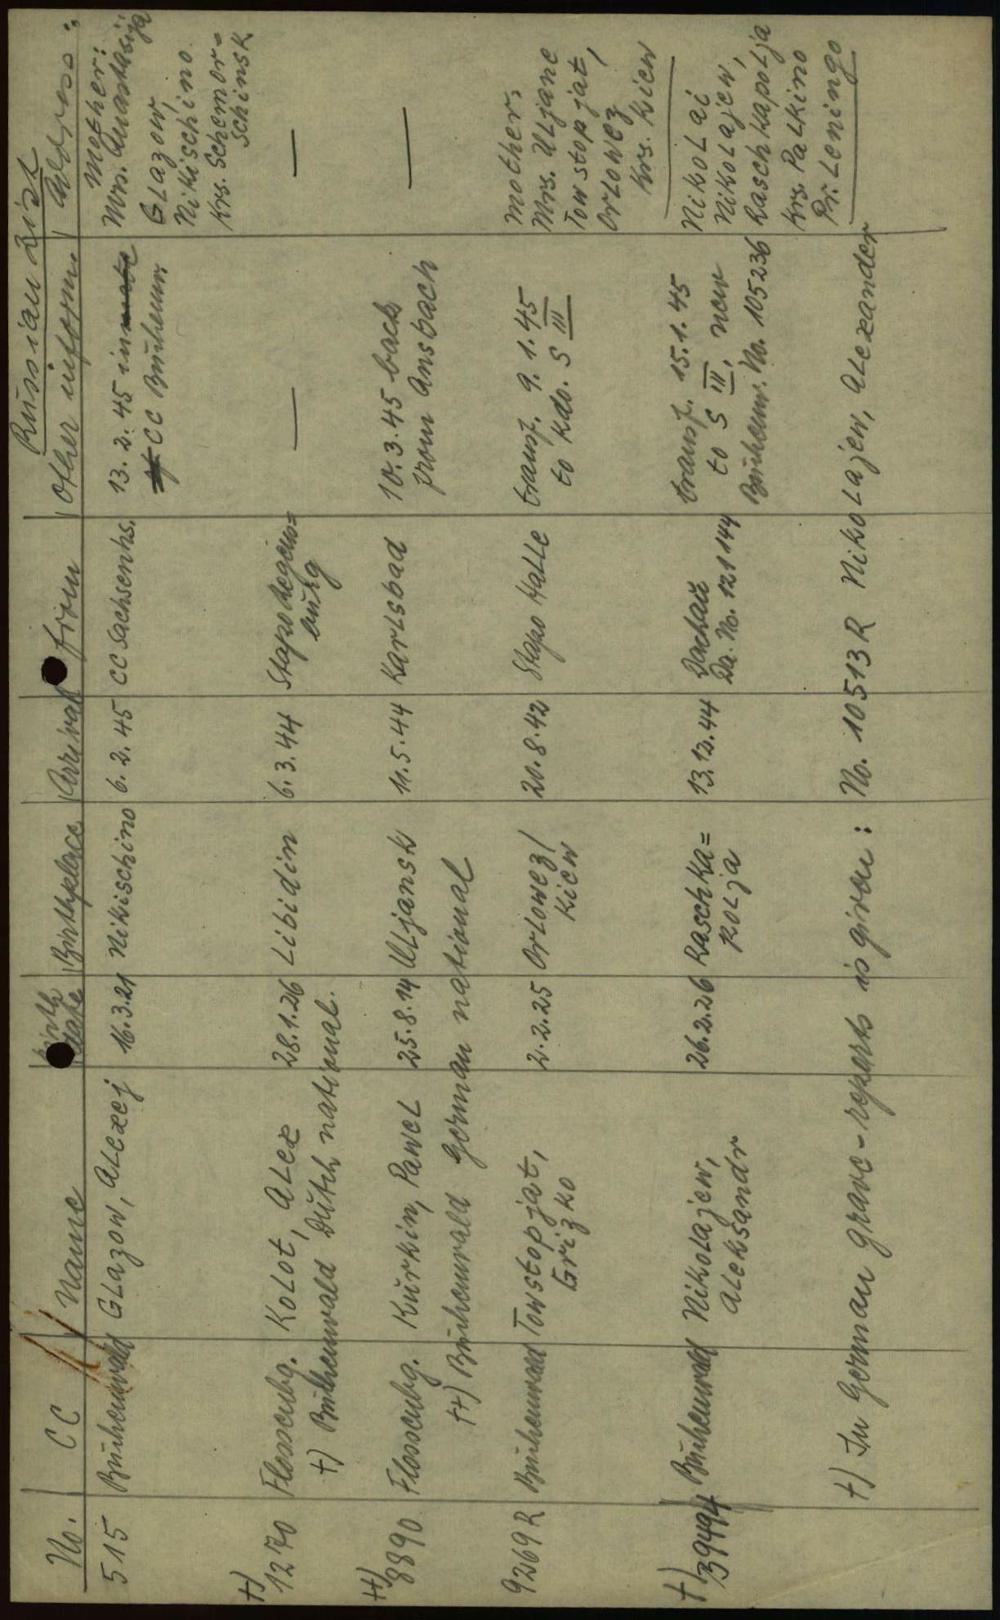 Russian List
No. CC Name Birth date Birthplace Arrival from Other inform. Address:
515 Buchenwald Glazow, Alexej 16.3.21 Nikischino 6.2.45 CC Sachsenhs. 13.2.45 in
CC Buchenw.
Mother:
Mrs. Anastasija
Glazow,
Nikischino
Krs. Schemor=
schinsk
†)
1270 Flossenbg. Kolot, Alex 28.1.26 Libidin 6.3.44 Stapo Regens=
burg — —
†) Buchenwald Dutch national.
††)
8890 Flossenbg. Kurkin, Pawel 25.8.14 Uljansk 11.5.44 Karlsbad 10.3.45 back
from Ansbach —
††) Buchenwald German national
9269 R Buchenwald Towstopjat,
Grizko 2.2.25 Orlowez/
Kiew 20.8.42 Stapo Halle transf. 9.1.45
to Kdo. S III
mother:
Mrs. Uljane
Towstopjat,
Orlowez
Krs. Kiew
†)
39494 Buchenwald Nikolajew,
Aleksandr 26.2.26 Raschka=
polja 13.12.44 Dachau
Da. No. 121144 transf. 15.1.45
to S III, new
Buchenw. No. 105236
Nikolai
Nikolajew,
Raschkapolja
Krs. Palkino
Pr. Leningo
†) In German grave-reports is given: No. 10513 R Nikolajew, Alexander